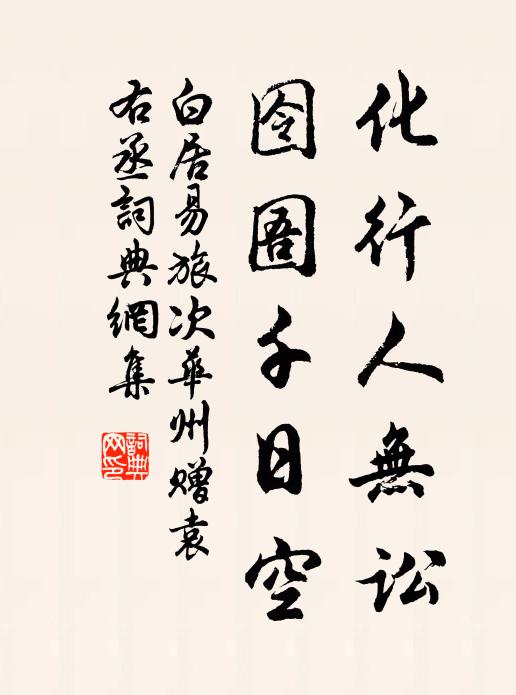 化行人無訟
囹圄千日空
白居易旅次華州赠袁
右丞詞典網集
詞典网印